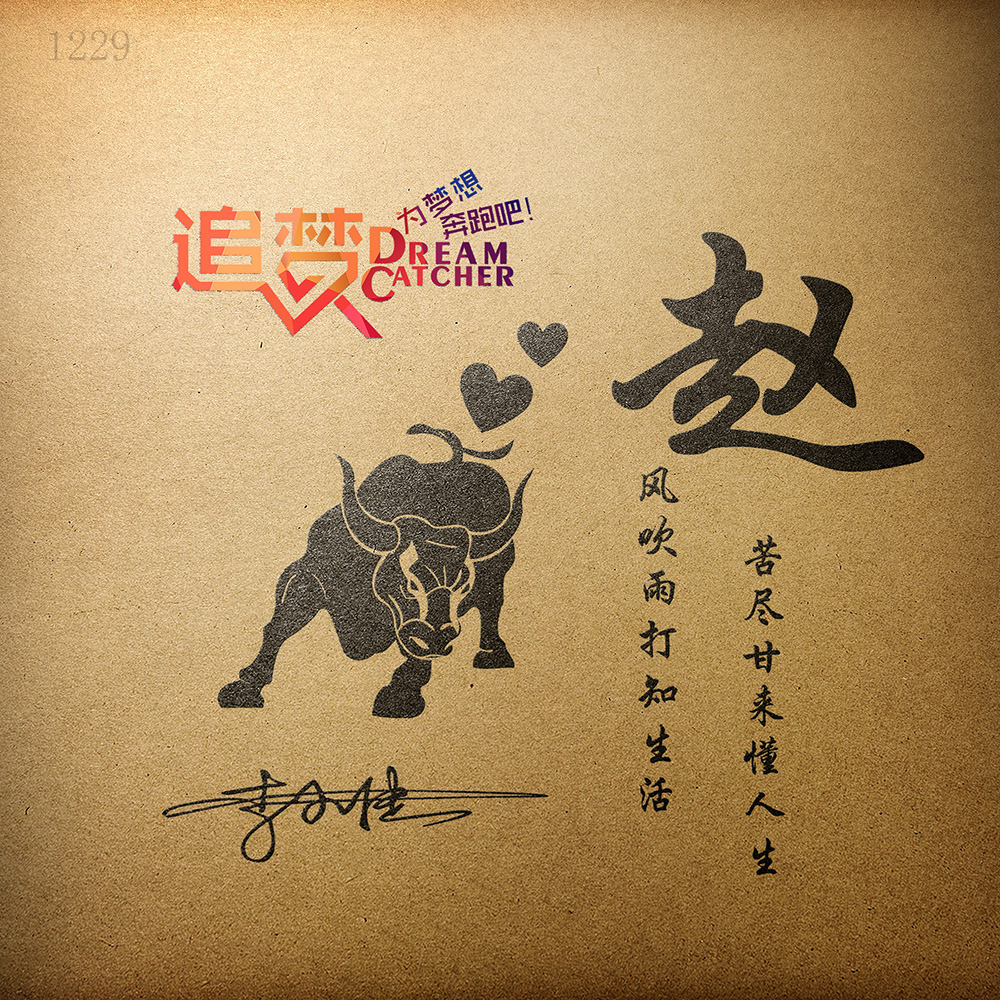 1229
追梦
为梦想
奔跑吧!
DREAM
CATCHER
赵
风吹雨打知生活
苦尽甘来懂人生